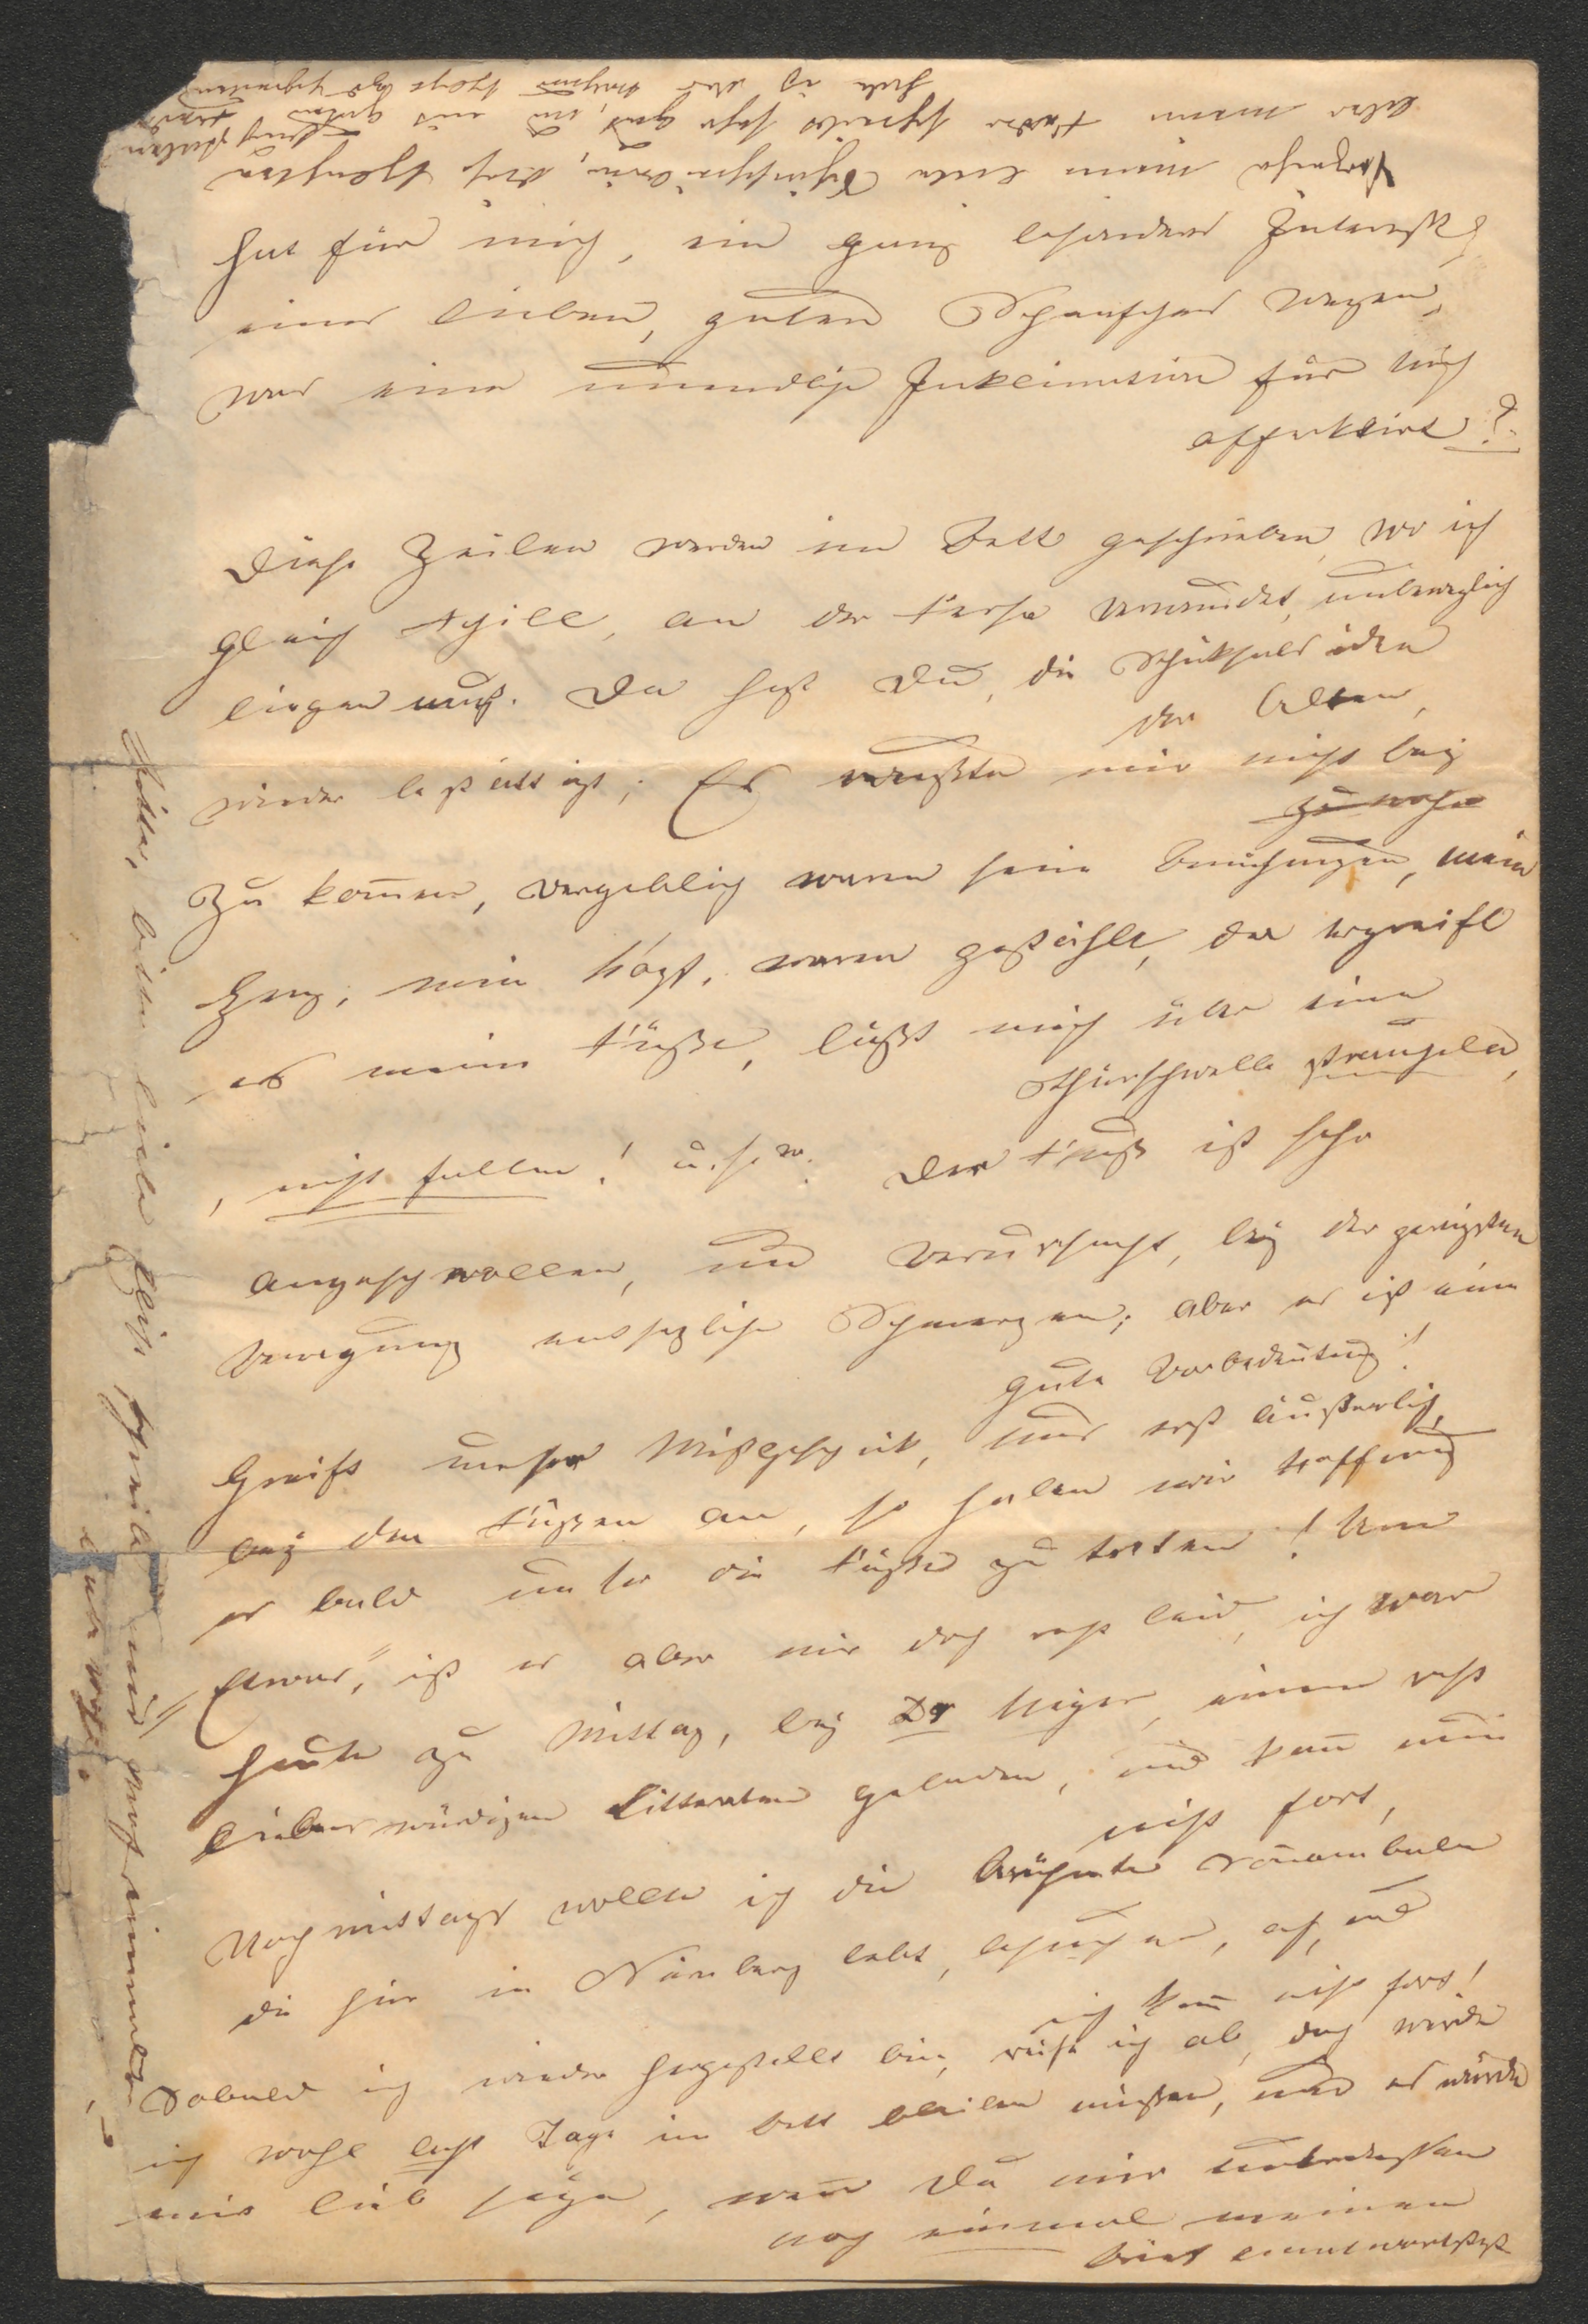 hat für mich, ein ganz besonderes Interesse,
einer lieben, guten wegen,
war eine unendliche Inklination für mich
affektirt?
Diese Zeilen werden im Bett geschrieben, wo ich
gleich Achill, an der Ferse verwundet, unbeweglich
liegen muß. Da hast Du, die Schiksals ideen
der Alten,
wieder bestättigt; Es wußte mir nicht bei
zu komen, vergeblich waren seine Bemühungen, mein
Herz, mein Kopf, waren gestählt, da ergreift
es meine Füße, läßt mich über eine
Thürschwelle straucheln,
, nicht fallen! u.s.w. Der Fuß ist sehr
angeschwollen, und verursacht, bei der geringsten
Bewegung entsezliche Schmerzen; aber es ist eine
gute Vorbedeutung!
Greift unser Mißgeschik, nur erst äußerlich,
bei den Füßen an, so haben wir Hoffnung
es bald unter die Füße zu treten! Um
Etwas, ist es aber mir doch recht leid, ich war
heute zu Mittag, bei Dr Meyer, einem recht
liebenswürdigen Litteraten geladen, und kann nun
nicht fort,
Nachmittags wollte ich die berühmte Somnambule
die hier in Nürnberg lebt, besuchen, ach, und
ich kann nicht fort!
Sobald ich wieder hergestellt bin, reise ich ab, doch werde
ich wohl acht Tage im Bett bleiben müssen, und es würde
mir lieb seyn, wenn Du mir unterdessen
noch einmal meinen
Brief beantwortetest
Bitte, bitte liebe schreib mir noch einmal